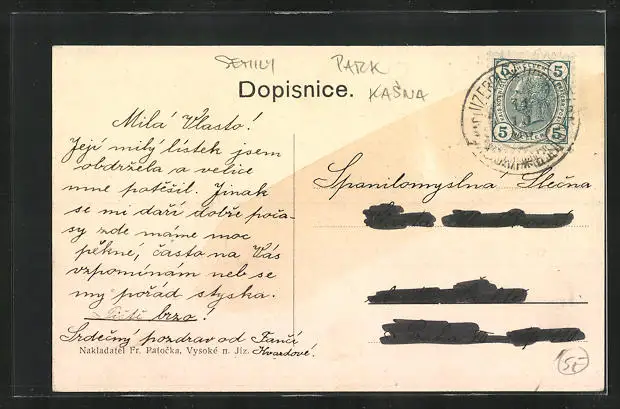 SEMILY PARK
KAŠNA
Dopisnice.
5 5
5 5
Milá Vlasto!
Její milý lístek jsem
obdržela a velice
mne potěšil. Jinak
se mi daří dobře poča-
sy zde máme moc
pěkné, často na Vás
vzpomínám neb se
my pořád styska.
Piště brzo!
Srdečný pozdrav od Fančí
Kvardové.
Nakladatel Fr. Patočka, Vysoké n. Jiz.
Spanilomyslna Slečna
5t